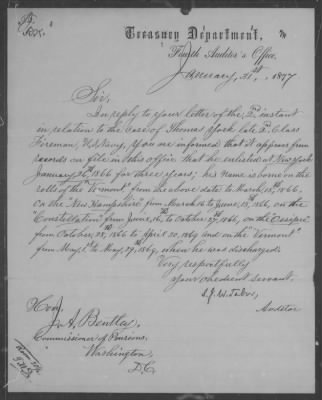 Treasury Department,
Fourth Auditor's Office,
January, 31st, 1877
Sir.
In reply to your letter of the 2d instant
in relation to the Case of Thomas York late 2d Class
Fireman, U.S. Navy, You are informed that it appears from
records on file in this office that he enlisted at New York
January 26th 1866 for three years; his name is borne on the
rolls of the "Vermont" from the above date to March, 15th, 1866,
on the "New Hampshire" from March 16 to June, 15th, 1866, on the
"Constellation" from June, 16th, to October 27th, 1866, on the
from October, 28th, 1866 to April 30, 1869 and on the "Vermont"
from May, 1st to May, 27th, 1869, when he was discharged.
Very respectfully
your obedient servant.
Auditor
Hon.
J. A. Bentley,
Commissioner of Pensions,
Washington,
D.C.